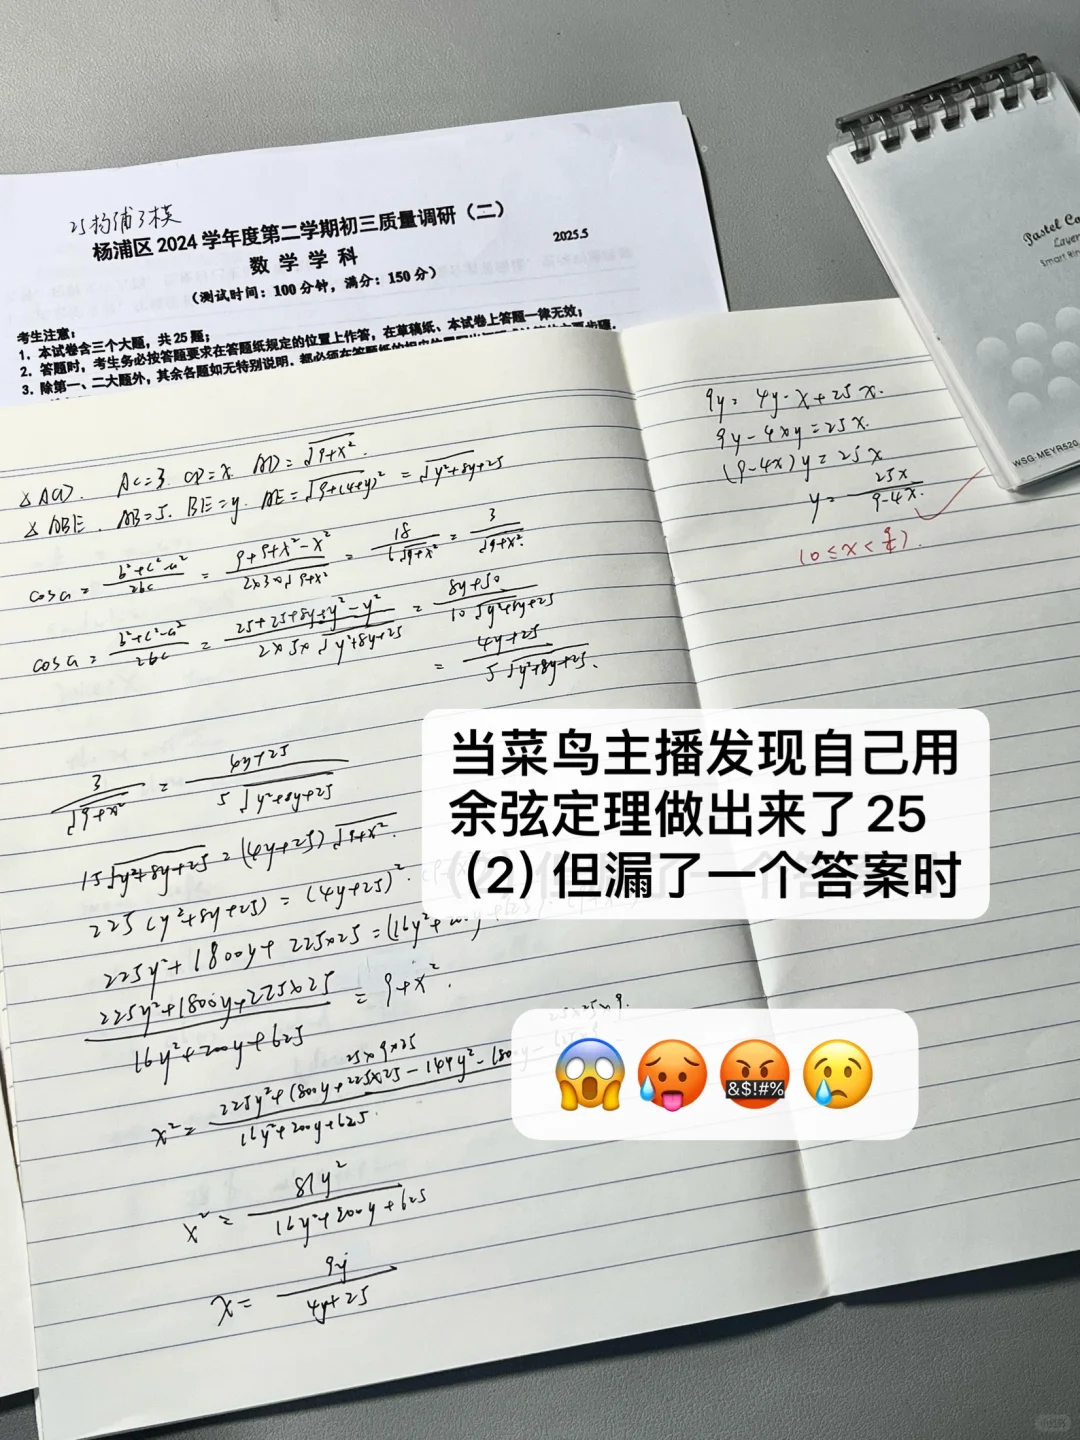 25杨浦二模
杨浦区 2024 学年度第二学期初三质量调研（二）
数 学 学 科
2025.5
（测试时间：100 分钟，满分：150 分）
考生注意：
1．本试卷含三个大题，共 25 题；
2．答题时，考生务必按答题要求在答题纸规定的位置上作答，在草稿纸、本试卷上答题一律无效；
3．除第一、二大题外，其余各题如无特别说明，都必须在答题纸的相应位置
△ACD. AC=3. CD=x. AD=√9+x².
△ABE. AB=5. BE=y. AE=√9+(4+y)² = √y²+8y+25
cos a = b²+c²-a²/2bc = 9+9+x²-x²/2×3×√9+x² = 18/6√9+x² = 3/√9+x².
cos a = b²+c²-a²/2bc = 25+25+8y+y²-y²/2×5×√y²+8y+25 = 8y+50/10√y²+8y+25
= 4y+25/5√y²+8y+25.
3/√9+x² = 4y+25/5√y²+8y+25
15√y²+8y+25 = (4y+25)√9+x².
225(y²+8y+25) = (4y+25)².
225y²+1800y+225×25 = (16y²+
225y²+1800y+225×25/16y²+200y+625 = 9+x².
25×25×9.
25×9×25
x² = 225y²+1800y+225×25-144y²-180/16y²+200y+625.
x² = 81y²/16y²+200y+625
x = 9y/4y+25
9y = 4y·x+25x.
9y-4xy=25x.
(9-4x)y=25x
y= 25x/9-4x.
(0≤x<9/4).
当菜鸟主播发现自己用
余弦定理做出来了25
(2)但漏了一个答案时
&$!#%
Pastel Co
Layer
Smart Rin
WSG-MEYR520
小红书